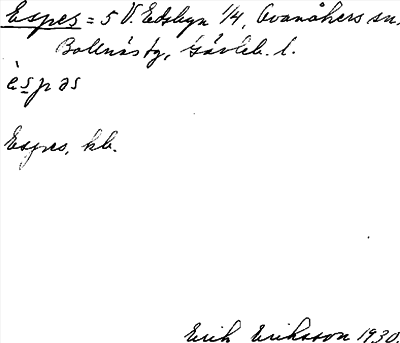 Espes = 5 V. Edsbyn 1/4, Ovanåkers sn.
Bollnäs tg, Gävleb. l.
èspəs
Espes, kb.
Erik Eriksson 1930.